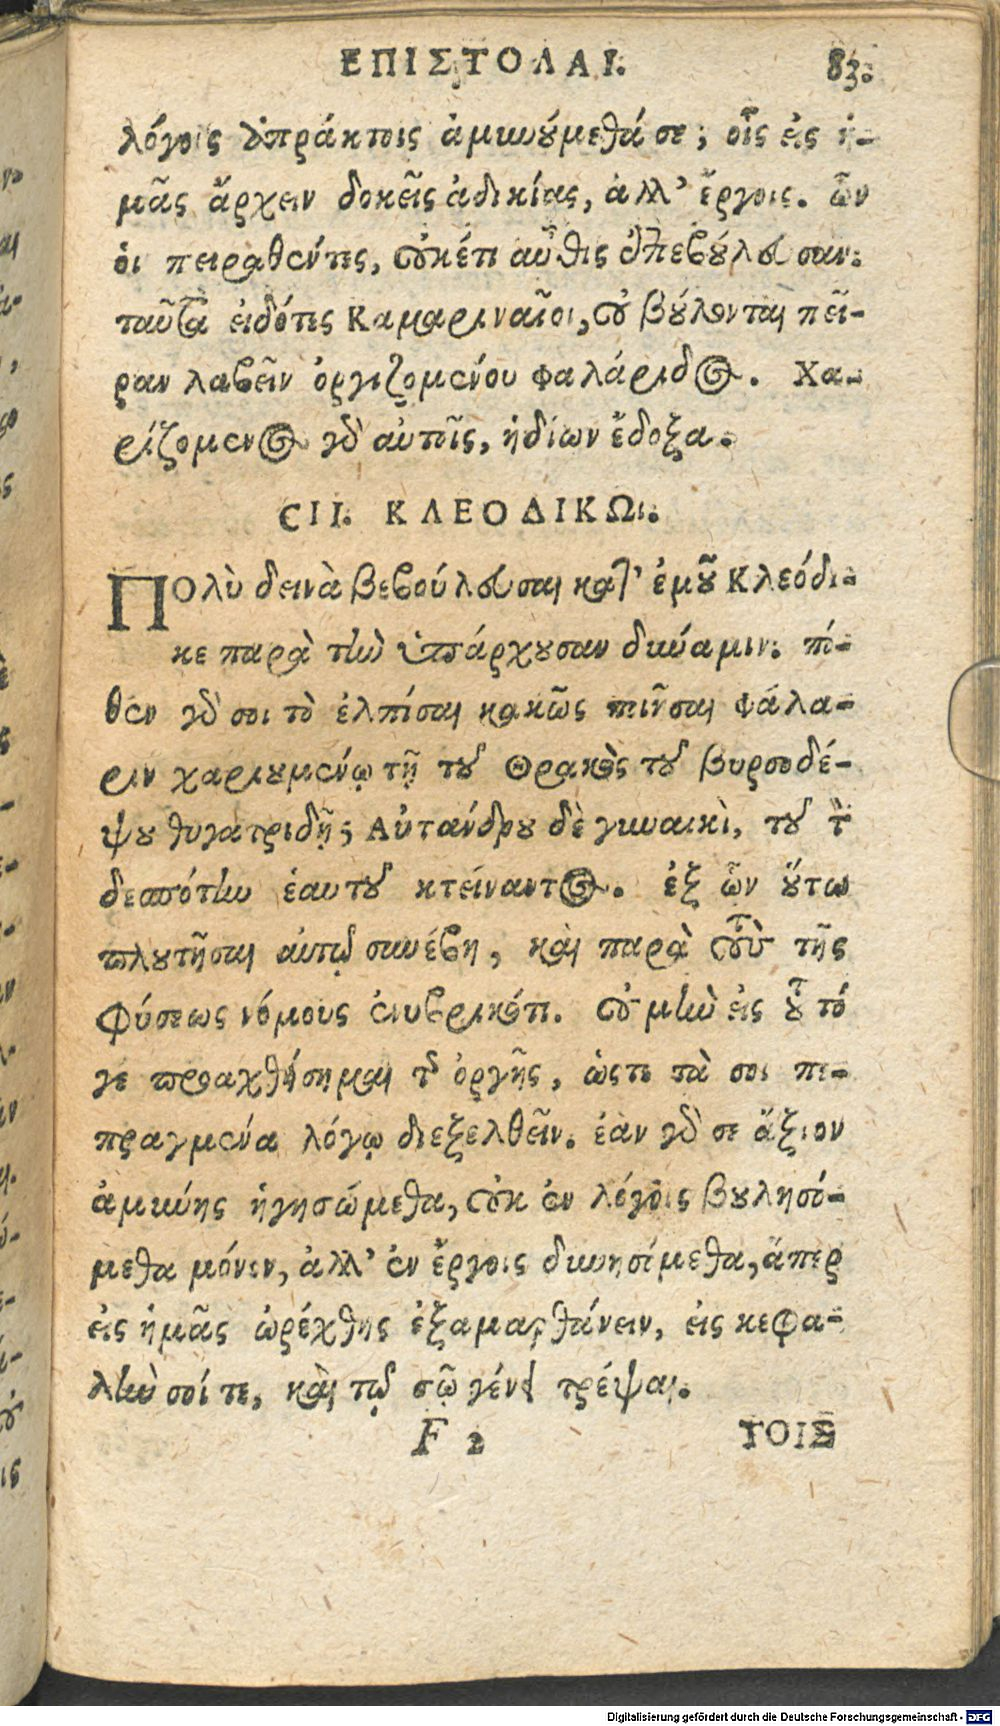 ΕΠΙΣΤΟΛΑΙ. 83.
λόγοις ἀπράκτοις ἀμυνούμεθά σε; οἷς εἰς ἡ-
μᾶς ἄρχειν δοκεῖς ἀδικίας, ἀλλ' ἔργοις. ὧν
οἱ πειραθέντες, οὐκέτι αὖθις ἐπεβούλευσαν.
ταῦτα εἰδότες Καμαριναῖοι, οὐ βούλονται πεῖ-
ραν λαβεῖν ὀργιζομένου Φαλάριδος. Χα-
ριζόμενος γὰρ αὐτοῖς, ἡδίων ἔδοξα.
CII. ΚΛΕΟΔΙΚΩι.
Πολὺ δεινὰ βεβούλευσαι κατ' ἐμοῦ Κλεόδι-
κε παρὰ τὴν ὑπάρχουσαν δύναμιν. πό-
θεν γάρ σοι τὸ ἐλπίσαι κακῶς ποιῆσαι Φάλα-
ριν χαριουμένῳ τῇ τοῦ Θρακὸς τοῦ βυρσοδέ-
ψου θυγατριδῇ; Αὐτάνδρου δὲ γυναικὶ, τοῦ τὸν
δεσπότην ἑαυτοῦ κτείναντος. ἐξ ὧν οὕτω
πλουτῆσαι αὐτῷ συνέβη, καὶ παρὰ τοὺς τῆς
φύσεως νόμους ἐνυβρικότι. οὐ μὴν εἰς τοῦτό
γε προαχθήσομαι τῆς ὀργῆς, ὥστε τά σοι πε-
πραγμένα λόγῳ διεξελθεῖν. ἐὰν γάρ σε ἄξιον
ἀμύνης ἡγησώμεθα, οὐκ ἐν λόγοις βουλησό-
μεθα μόνον, ἀλλ' ἐν ἔργοις δυνησόμεθα, ἅπερ
εἰς ἡμᾶς ὠρέχθης ἐξαμαρτάνειν, εἰς κεφα-
λὴν σοί τε, καὶ τῷ σῷ γένει τρέψαι.
F 2 ΤΟΙΣ
Digitalisierung gefördert durch die Deutsche Forschungsgemeinschaft - DFG